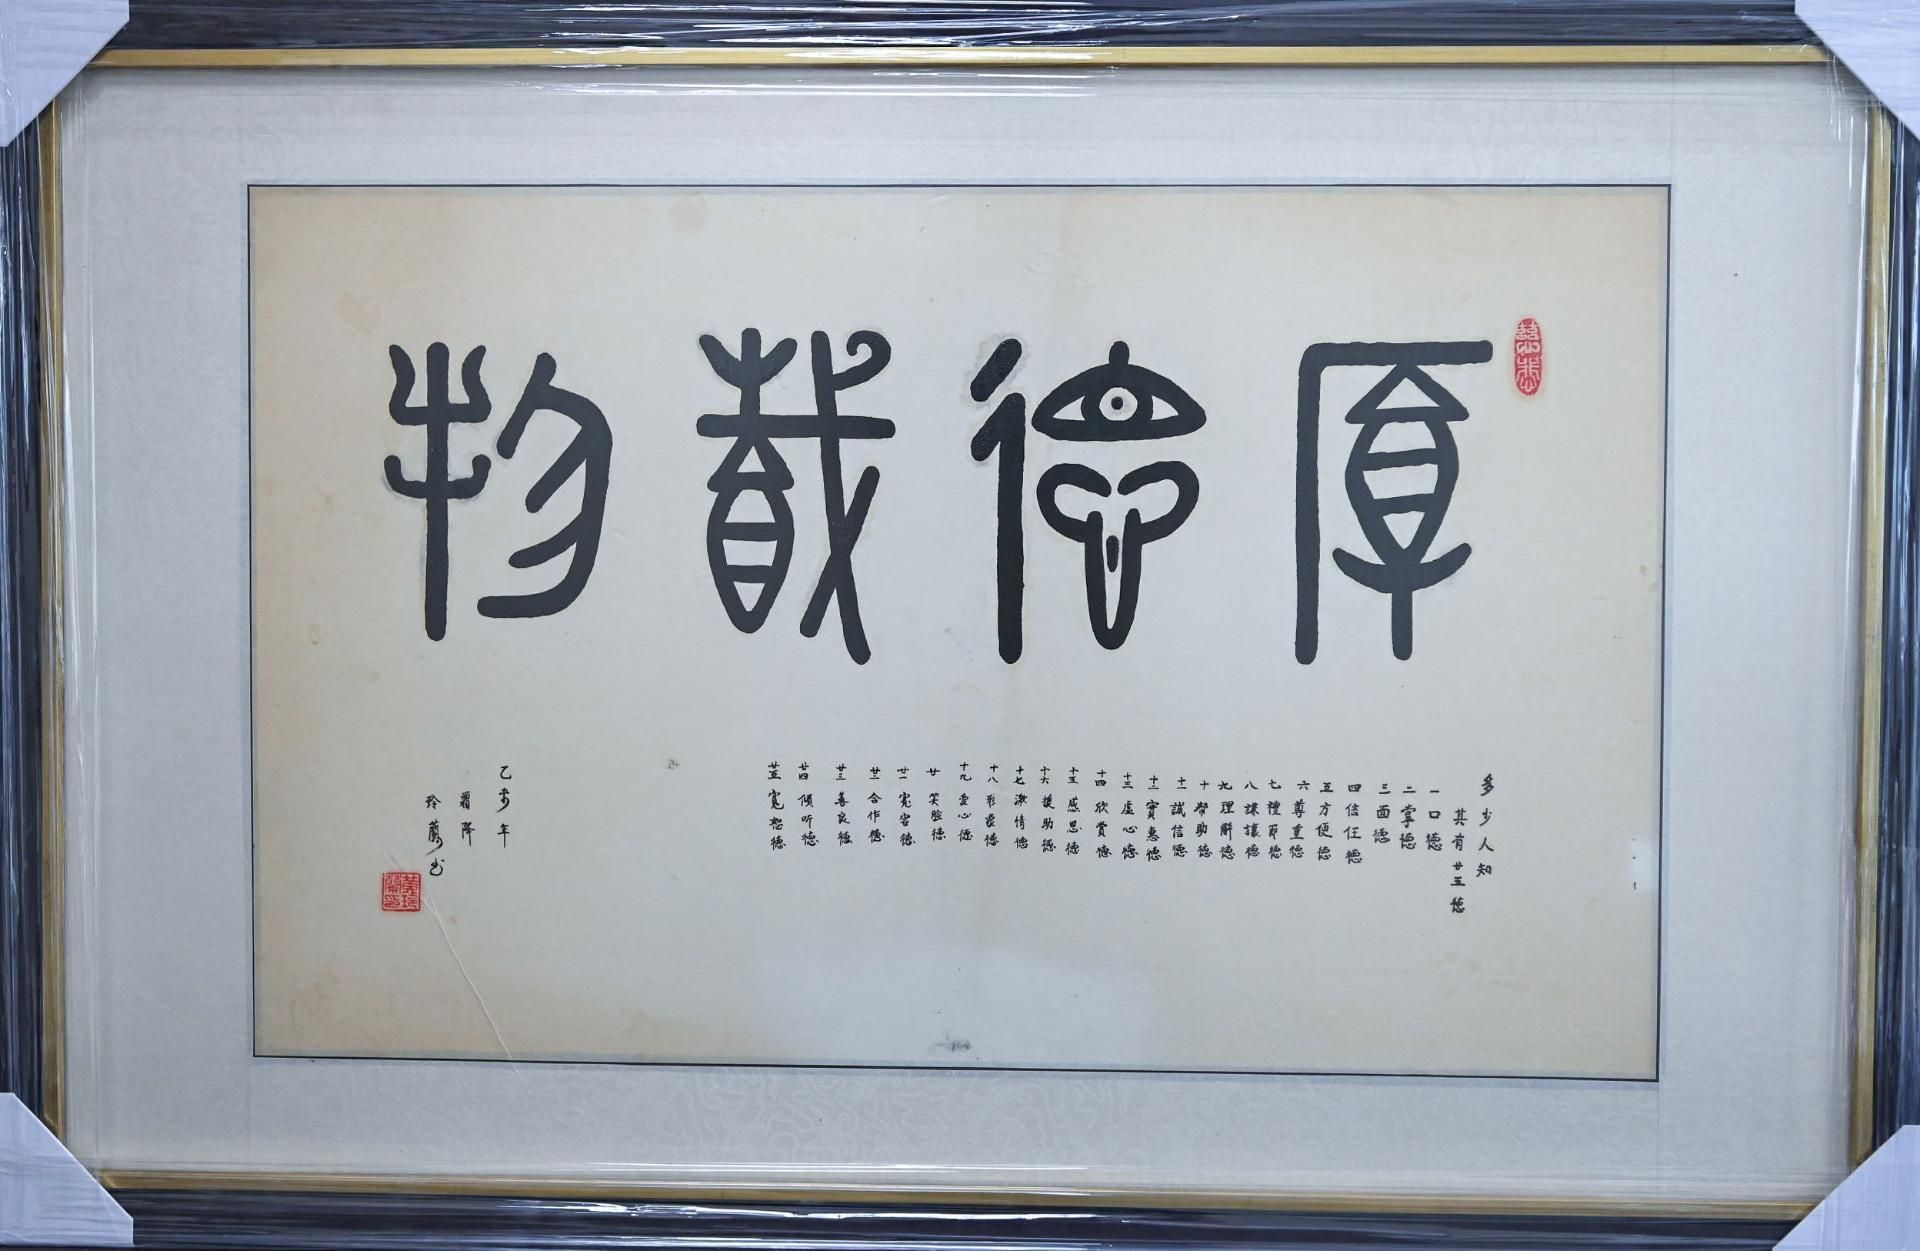 厚德載物
多少人知
其有廿五德
一口德
二掌德
三面德
四信任德
五方便德
六尊重德
七禮節德
八謙讓德
九理解德
十幫助德
十一誠信德
十二實惠德
十三虛心德
十四欣賞德
十五感恩德
十六援助德
十七激情德
十八形象德
十九愛心德
廿笑臉德
廿一寬容德
廿二合作德
廿三善良德
廿四傾听德
廿五寬恕德
乙未年
霜降
玲蘭书